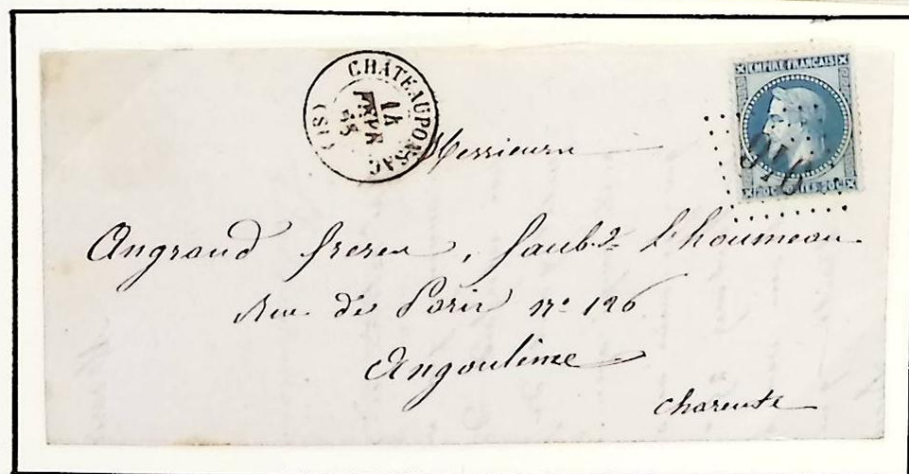 CHATEAUPONSAC
EMPIRE FRANÇAIS
Messieurs
Angrand frères, faub.g L'houmeau
Rue de Paris n° 126
Angoulême
Charente